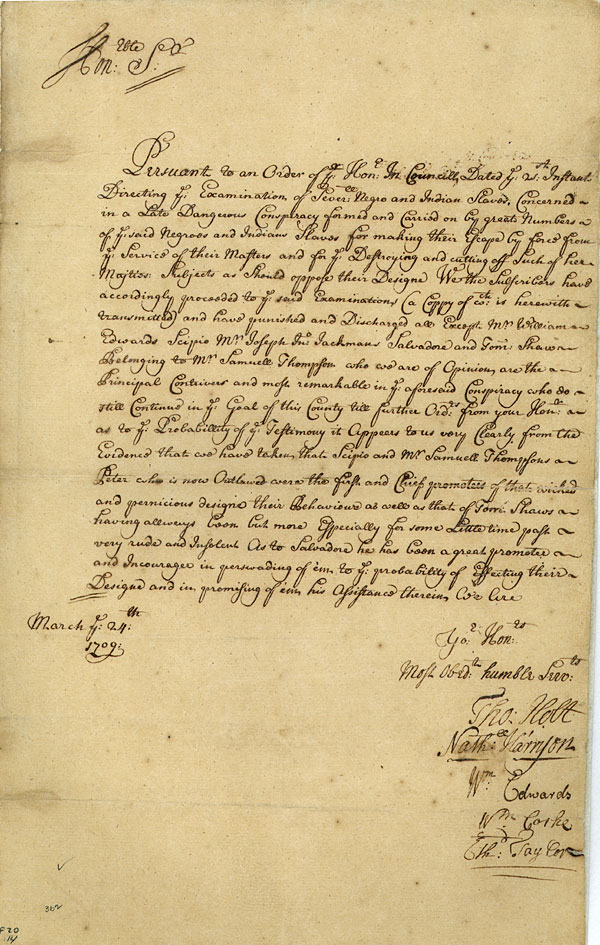 Hon:ble Sr
Pursuant to an Order of ye: Honr: In Councill, Dated ye: 21:st Instant
Directing ye: Examination of Severll: Negro and Indian Slaves, Concerned
in a Late Dangerous Conspiracy formed and Carried on by great Numbers
of ye: said Negroes and Indians Slaves for making their Escape by force from
ye: Service of their Masters and for ye: Destroying and cutting off Such of her
Majties: Subjects as Should oppose their Designe We the Subscribers have
accordingly proceeded to ye: said Examinations (a Coppy of wch: is herewith
transmitted) and have punished and Discharged all Except Mr: William
Edwards Scipio Mr: Joseph Jno: Jackmans Salvadore and Tom: Shaw
Belonging to Mr: Samuell Thompson who we are of Opinion, are the
Principal Contrivers and most remarkable in ye: aforesaid Conspiracy who do
still Continue in ye: Goal of this County till further Ordrs: from your Honr:
as to ye: Probability of ye: Testimony it Appears to us very Clearly from the
Evidence that we have taken, that Scipio and Mr: Samuell Thompsons
Peter who is now Outlawed were the first and Chief promoters of that wicked
and pernicious designe their Behaviour as well as that of Tom: Shaws
having allways been but more Especially for some Little time past
very rude and Insolent As to Salvadore he has been a great promoter
and Incourager in perswading of 'em to ye: probability of Effecting their
Designe and in promising of 'em his Assistance therein We are
March ye: 24:th
1709:
Yor: Honrs:
Most Obedt: humble Servts:
Tho: Holt
Nathll: Harrison
Wm: Edwards
Wm: Cocke
Ethd: Taylor
362
F 20
14